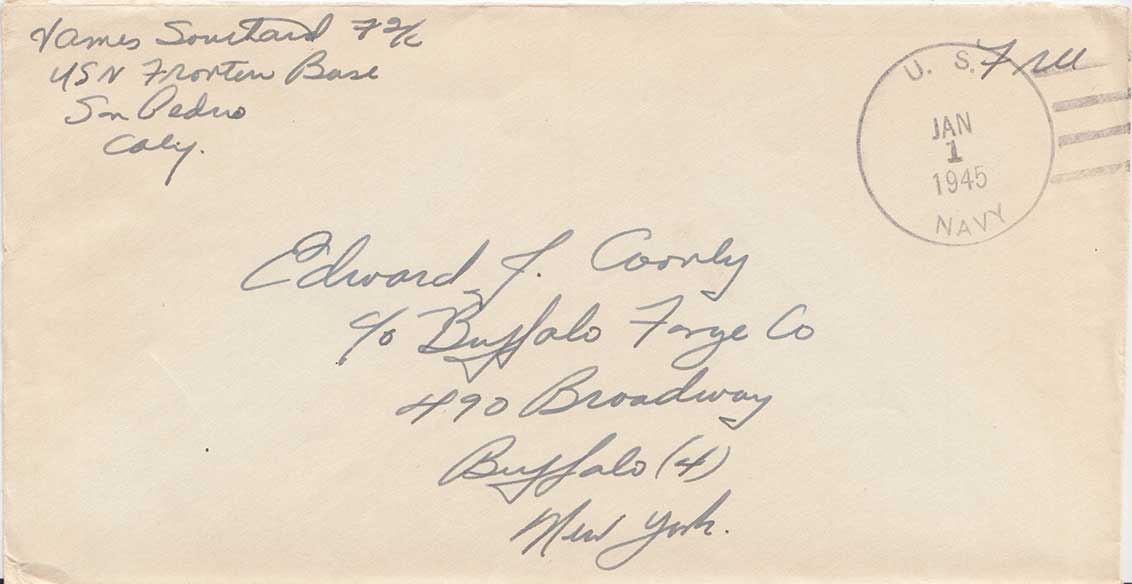 James Souchard F2/c
USN Frontier Base
San Pedro
Calif.
Free
U. S.
JAN
1
1945
NAVY
Edward J. Coonly
c/o Buffalo Forge Co
490 Broadway
Buffalo (4)
New York.